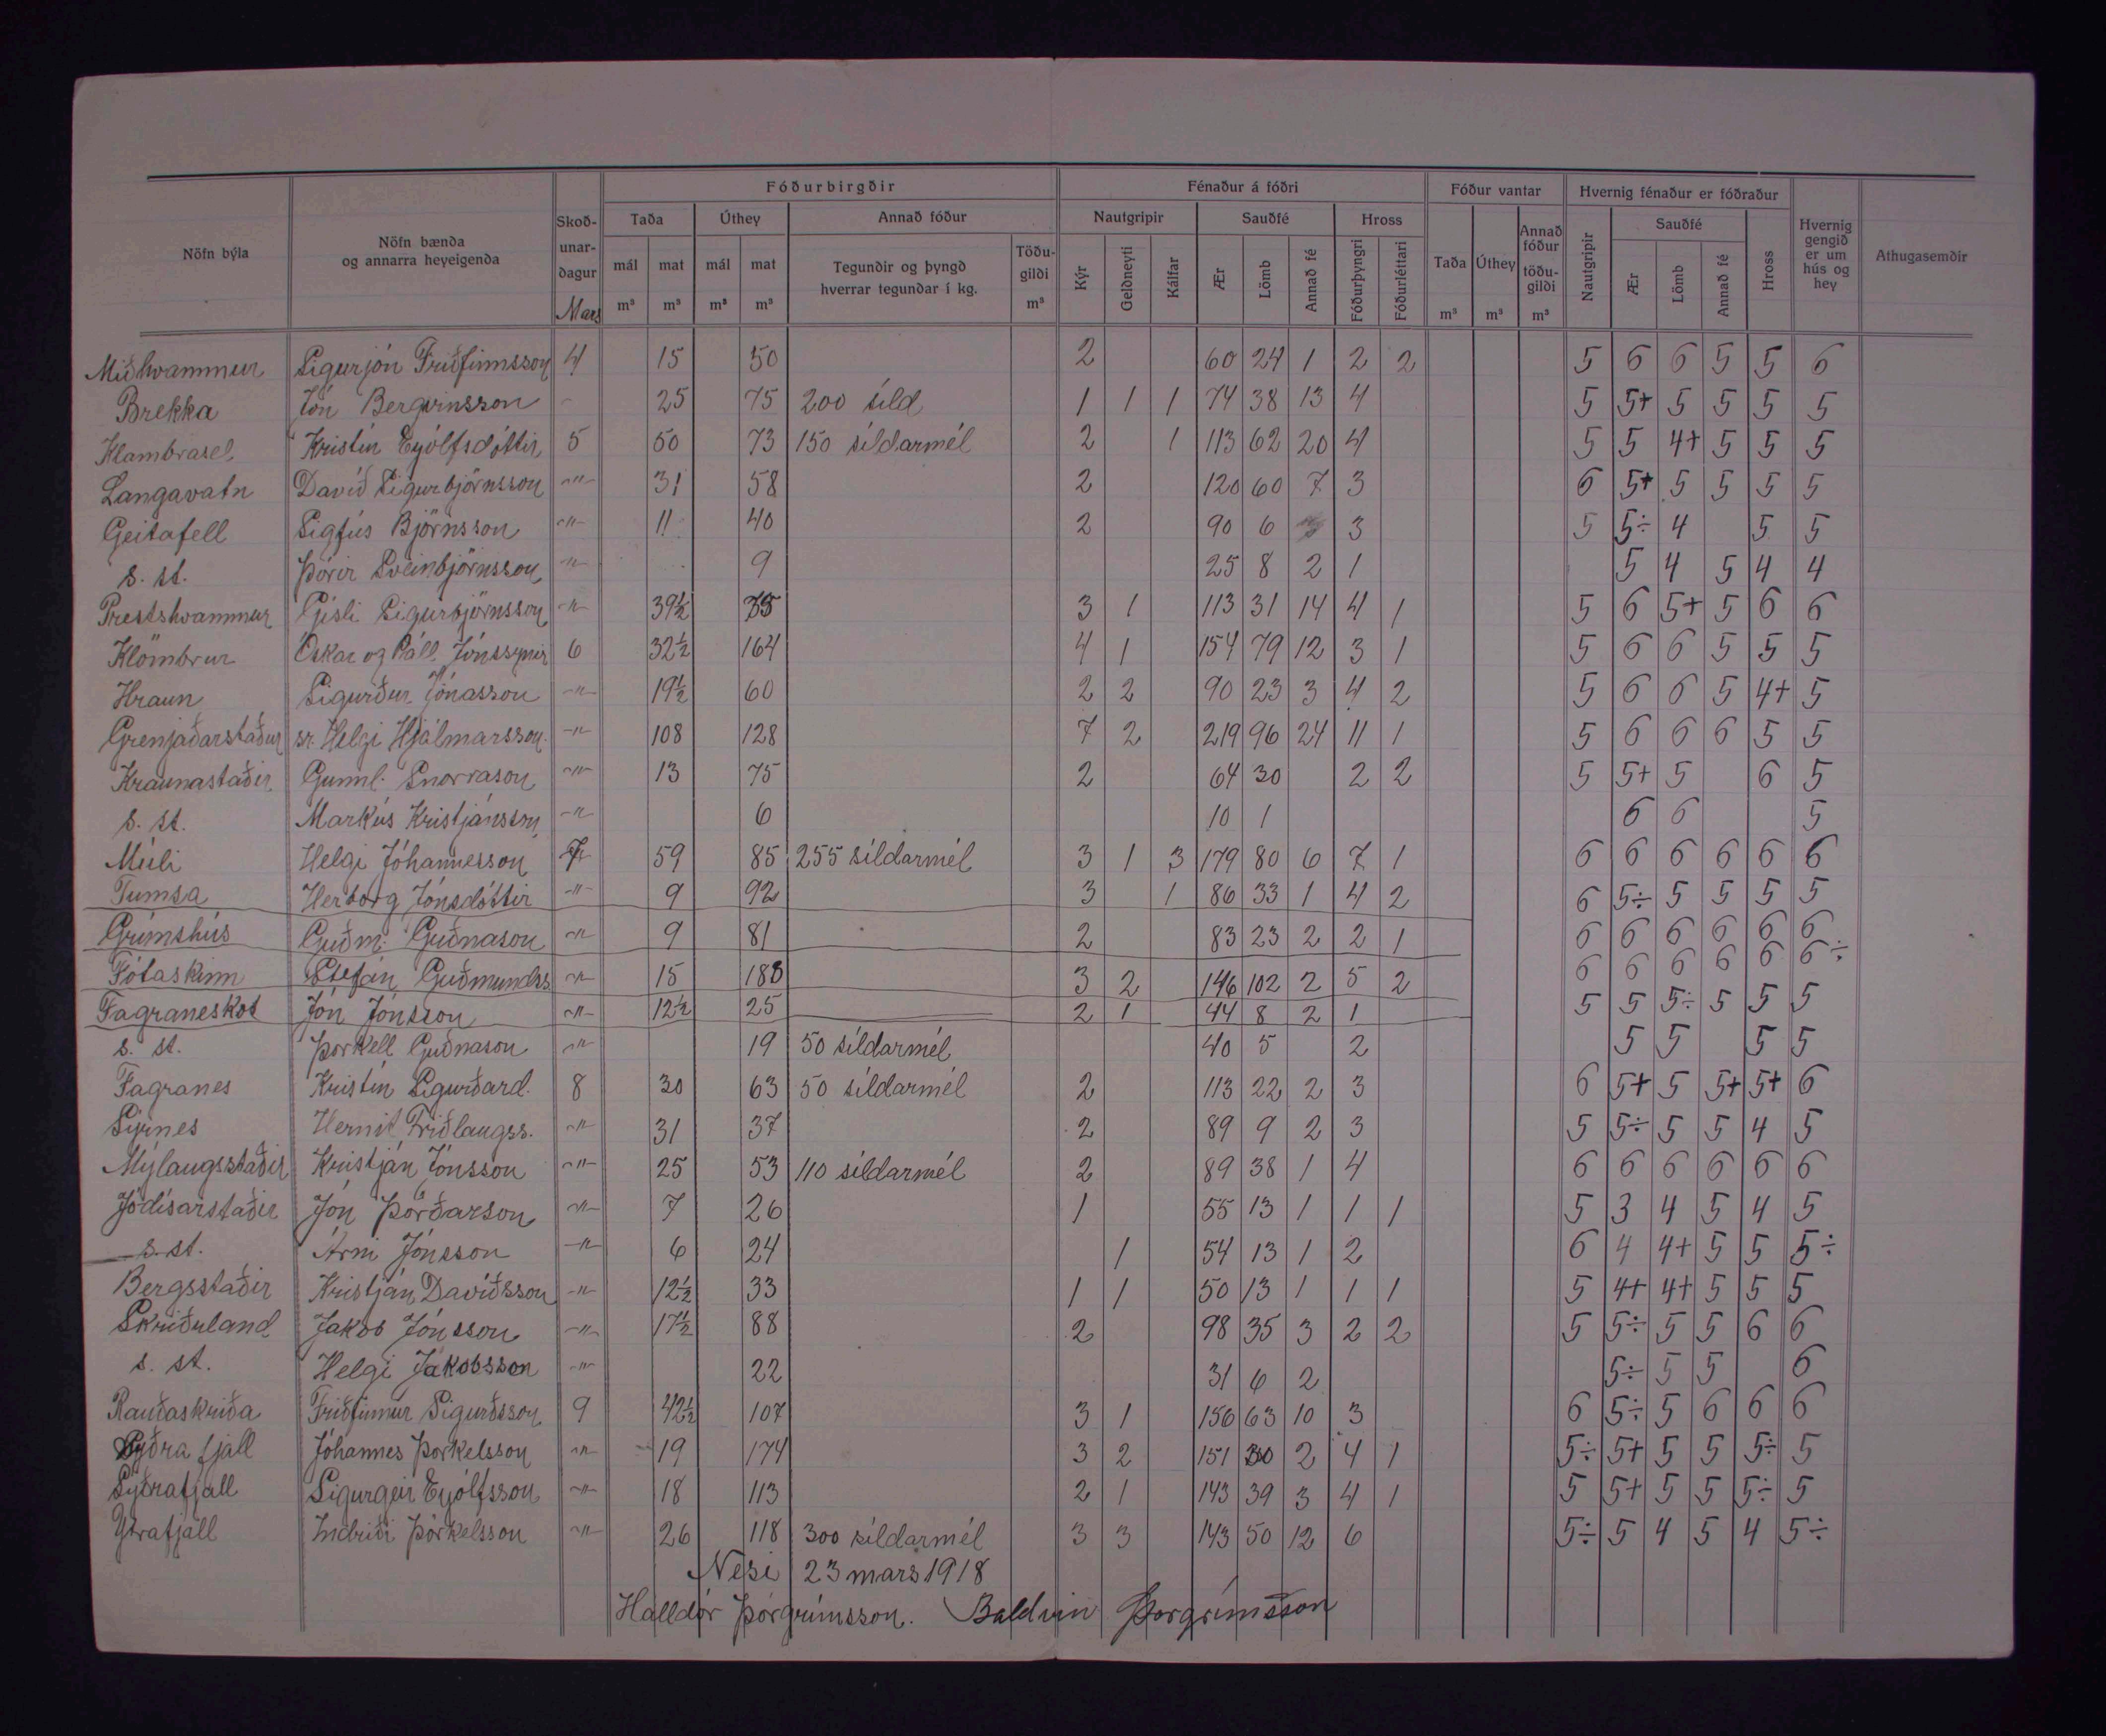 Fóðurbirgðir Fénaður á fóðri Fóður vantar Hvernig fénaður er fóðraður
Nöfn býla Nöfn bænda og annarra heyeigenda Skoðunardagur Taða Úthey Annað fóður Nautgripir Sauðfé Hross Taða Úthey Annað fóður töðugildi Nautgripir Sauðfé Hross Hvernig gengið er um hús og hey Athugasemdir
mál mat mál mat Tegundir og þyngd hverrar tegundar í kg. Töðugildi Kýr Geldneyti Kálfar Ær Lömb Annað fé Fóðurþyngri Fóðurléttari Ær Lömb Annað fé
Mars m³ m³ m³ m³ m³ m³ m³ m³
Miðhvammur Sigurjón Friðfinnsson 4 15 50 2 60 24 1 2 2 5 6 6 5 5 6
Brekka Jón Bergvinsson - 25 75 200 síld 1 1 1 74 38 13 4 5 5+ 5 5 5 5
Klambrasel Kristín Eyólfsdóttir 5 50 73 150 síldarmél 2 1 113 62 20 4 5 5 4+ 5 5 5
Langavatn Davíð Sigurbjörnsson -"- 31 58 2 120 60 7 3 6 5+ 5 5 5 5
Geitafell Sigfús Björnsson -"- 11 40 2 90 6 3 5 5÷ 4 5 5
s. st. Þórir Sveinbjörnsson -"- 9 25 8 2 1 5 4 5 4 4
Presthvammur Gísli Sigurbjörnsson -"- 39½ 35 3 1 113 31 14 4 1 5 6 5+ 5 6 6
Klömbrur Óskar og Páll Jónssynir 6 32½ 164 4 1 154 79 12 3 1 5 6 6 5 5 5
Hraun Sigurður Jónasson -"- 19½ 60 2 2 90 23 3 4 2 5 6 6 5 4+ 5
Grenjaðarstaður sr. Helgi Hjálmarsson -"- 108 128 7 2 219 96 24 11 1 5 6 6 6 5 5
Kraunastaðir Gunnl. Snorrason -"- 13 75 2 64 30 2 2 5 5+ 5 6 5
s. st. Markús Kristjánsson -"- 6 10 1 6 6 5
Múli Helgi Jóhannesson 7 59 85 255 síldarmél 3 1 3 179 80 6 7 1 6 6 6 6 6 6
Tumsa Herborg Jónsdóttir -"- 9 92 3 1 86 33 1 4 2 6 5÷ 5 5 5 5
Grímshús Guðm. Guðnason -"- 9 81 2 83 23 2 2 1 6 6 6 6 6 6
Fótaskinn Stefán Guðmundss. -"- 15 188 3 2 146 102 2 5 2 6 6 6 6 6 6÷
Fagraneskot Jón Jónsson -"- 12½ 25 2 1 44 8 2 1 5 5 5÷ 5 5 5
s. st. Þorkell Guðnason -"- 19 50 síldarmél 40 5 2 5 5 5 5
Fagranes Kristín Sigurðard. 8 30 63 50 síldarmél 2 113 22 2 3 6 5+ 5 5+ 5+ 6
Sýrnes Hernit Friðlaugss. -"- 31 37 2 89 9 2 3 5 5÷ 5 5 4 5
Mýlaugsstaðir Kristján Jónsson -"- 25 53 110 síldarmél 2 89 38 1 4 6 6 6 6 6 6
Jódísarstaðir Jón Þórðarson -"- 7 26 1 55 13 1 1 1 5 3 4 5 4 5
s. st. Árni Jónsson -"- 6 24 1 54 13 1 2 6 4 4+ 5 5 5÷
Bergsstaðir Kristján Davíðsson -"- 12½ 33 1 1 50 13 1 1 1 5 4+ 4+ 5 5 5
Skriðuland Jakob Jónsson -"- 17½ 88 2 98 35 3 2 2 5 5÷ 5 5 6 6
s. st. Helgi Jakobsson -"- 22 31 6 2 5÷ 5 5 6
Rauðaskriða Friðfinnur Sigurðsson 9 42½ 107 3 1 156 63 10 3 6 5÷ 5 6 6 6
Syðra fjall Jóhannes Þorkelsson -"- 19 174 3 2 151 30 2 4 1 5÷ 5+ 5 5 5÷ 5
Syðrafjall Sigurgeir Eyólfsson -"- 18 113 2 1 143 39 3 4 1 5 5+ 5 5 5÷ 5
Ytrafjall Indriði Þórkelsson -"- 26 118 300 síldarmél 3 3 143 50 12 6 5÷ 5 4 5 4 5÷
Nesi 23 mars 1918
Halldór Þorgrímsson. Baldvin Þorgrímsson